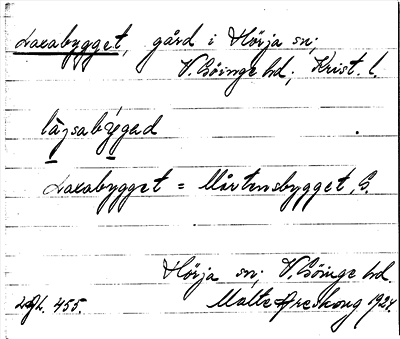 Laxabygget, gård i Hörja sn;
V. Göinge hd; Krist. l.
làɡsabýgəd
Laxabygget = Mårtensbygget, G.
Hörja sn; V. Göinge hd.
455. Malte Areskoug 1924.